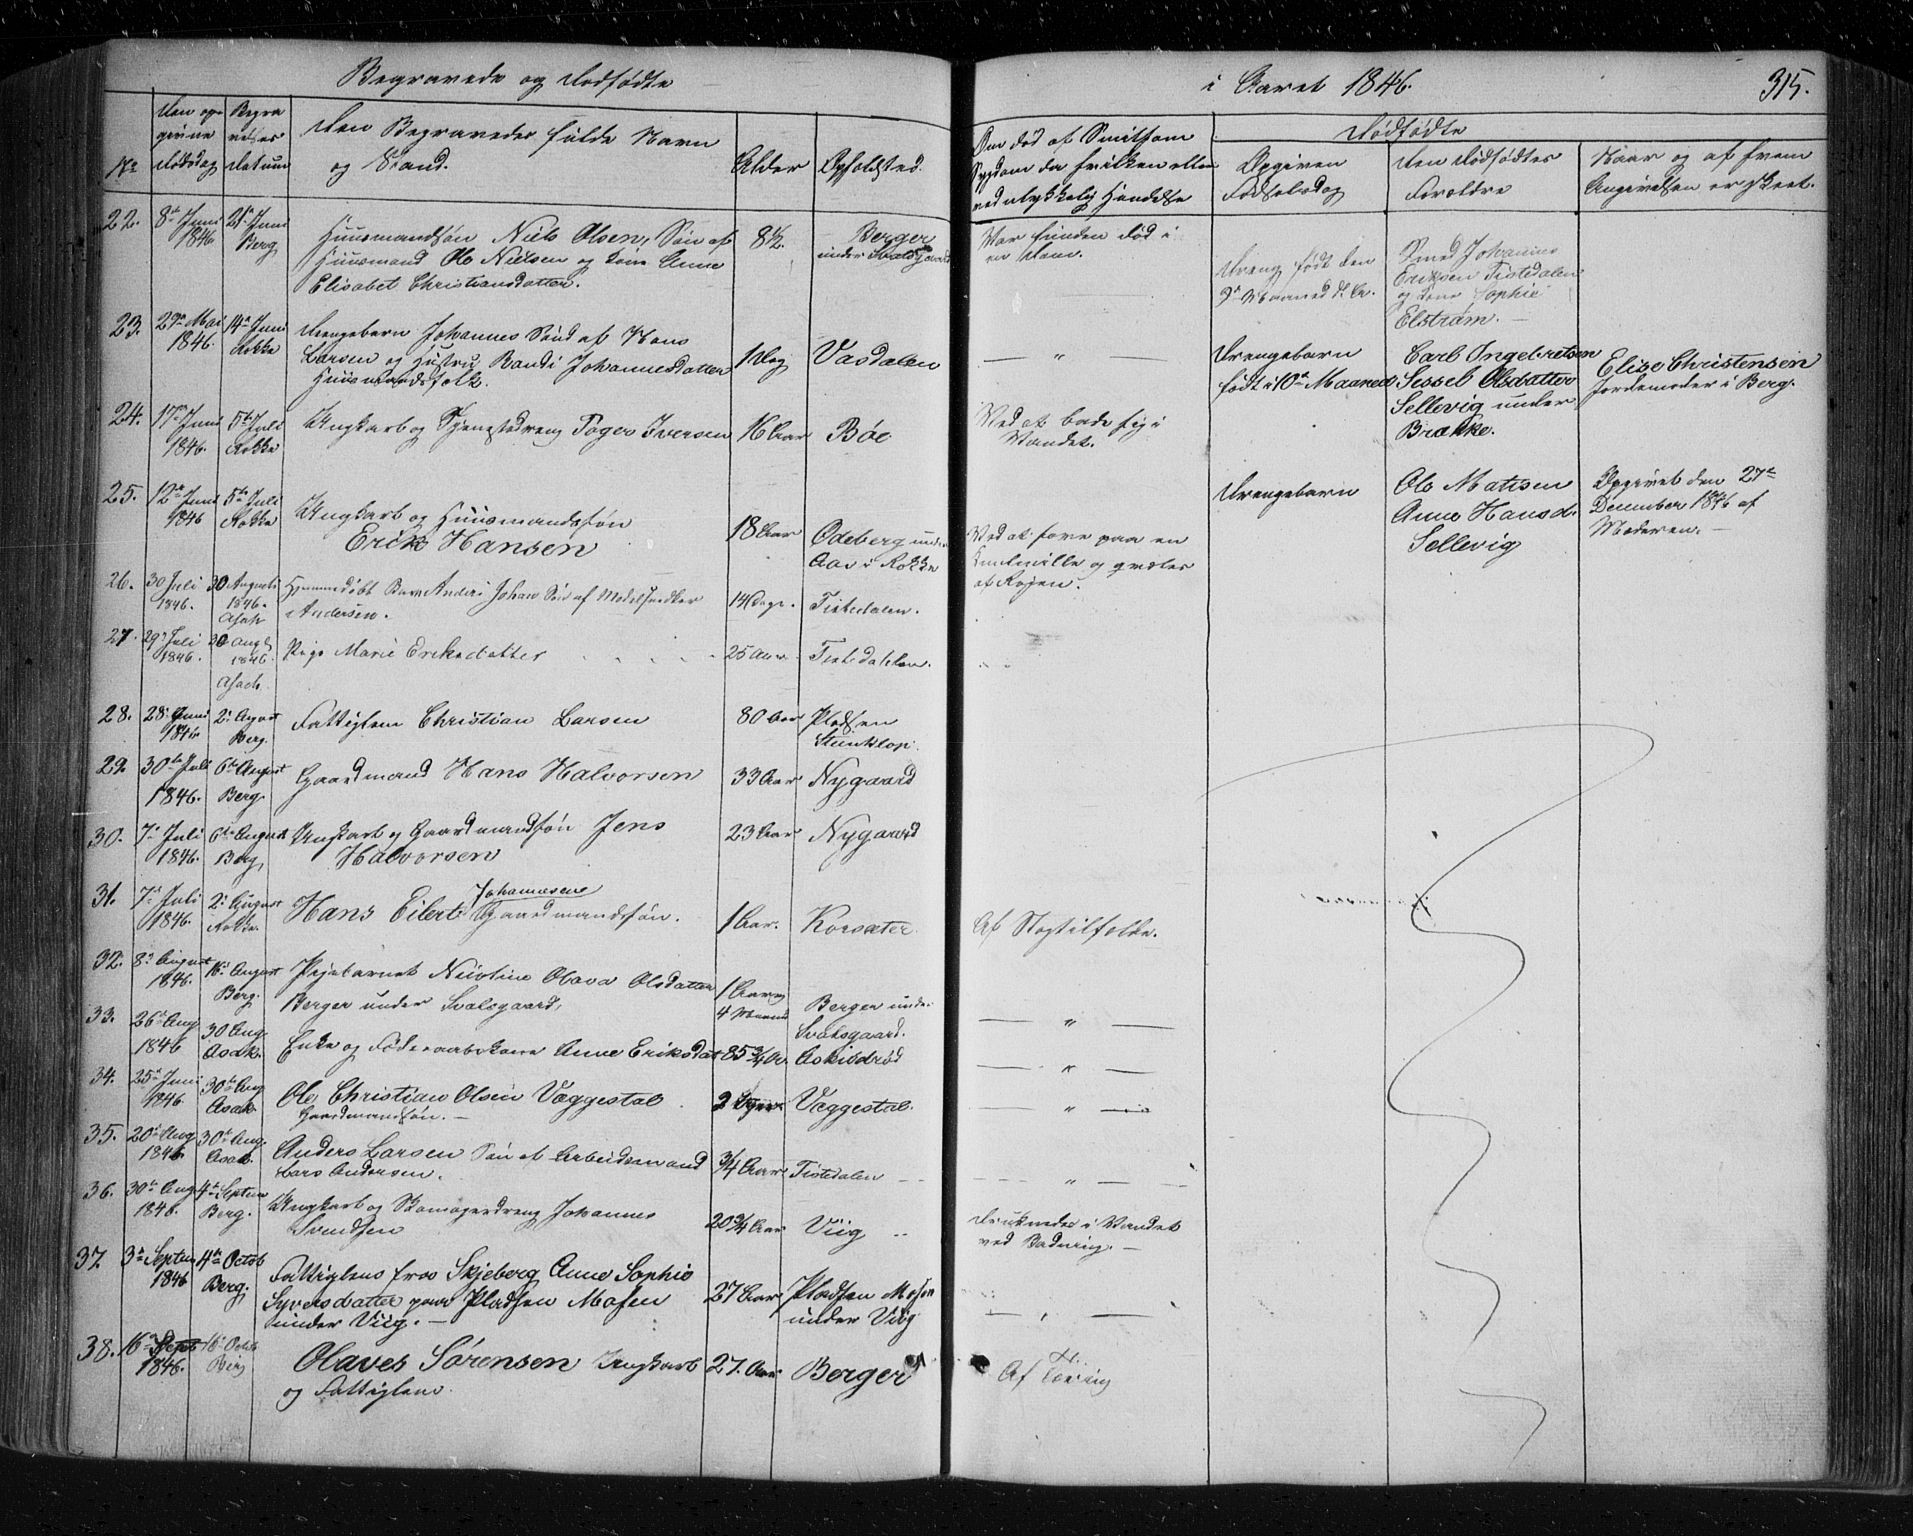 Begravede og Dødfødte
i Aaret 1846.
315.
No
Den opgivne Dødsdag
Begravelses Datum
Den Begravedes fulde Navn og Stand.
Alder
Opholdsted.
Om død af Smitsom Sygdom da hvilken eller ved ulykkelig Hændelse
Dødfødte
Opgiven Fødselsdag
Den Dødfødtes Forældre
Naar og af hvem Angivelsen er skeet.
22. 8de Juni 1846 21de Juni Berg
Huusmandsøn Niels Olsen, Søn af
Huusmand Ole Nielsen og Kone Anne
Elisabet Christiansdatter.
8½ Berger under Svalsgaard
Var funden død i en Dam.
Dreng født den 9de Maaned
Smed Johannes Eriksen Tistedalen og Kone Sophie Elstrøm.
23. 29de Mai 1846. 14de Juni Rokke
Drengebarn Johannes Sønd af Hans
Larsen og Hustru Randi Johannesdatter
Huusmandsfolk.
1 Dag Vasdalen
— " —
Drengebarn født i 10de Maaned
Carl Ingebretsen Sessel Olsdatter Sellevig under Brække.
Elise Christensen Jordemoder i Berg.
24. 17de Juni 1846. 5te Juli Rokke
Ungkarl og Tjenestedreng Toger Iversen 16 Aar Bøe
Ved at bade sig i Vandet.
25. 12te Juni 1846 5te Juli Rokke
Ungkarl og Huusmandssøn
Erik Hansen
18 Aar Odeberg under Aas i Rokke
Ved at sove paa en Kulmille og qvæltes af Røgen.
Drengebarn
Ole Matisen Anne Hansd. Sellevig
Opgivet den 27de December 1846 af Moderen.
26. 30 Juli 1846. 30 Augusti 1846. Asak
Hjemmedøbt Barn Anders Johan Søn af Modelsnedker
Andersen.
14 Dage. Tistedalen.
27. 29de Juli 1846. 30 Aug. 1846 Asak.
Pige Marie Eriksdatter 25 Aar Tistedahlen.
28. 28. Juni 1846. 2. August Berg.
Fattiglem Christian Larsen 80 Aar Pladsen Steenklop.
29 30te Juli 1846. 6te August Berg.
Gaardmand Hans Halvorsen 33 Aar Nygaard
30. 7de Juli 1846. 6te August Berg,
Ungkarl og Gaardmandssøn Jens
Halvorsen
23 Aar Nygaard
31. 7de Juli 1846. 2. August Rokke.
Johannesen
Hans Eilert Gaardmandssøn. 1 Aar. Korsæter.
Af Slagtilfælde.
32. 8de August 1846. 16de August Berg.
Pigebarnet Olava Olsdatter
Berger under Svalsgaard,
1 Aar og 4 Maaned Berger under Svalsgaard.
— " —
33. 26de Aug 1846 30 Aug. Asak.
Enke og Føderaadskone Anne Eriksdat 85¾ Ar. Askisdrød
— " —
34. 25de Juni 1846. 30te Aug Asak.
Ole Christian Olsen Væggestøl
Gaardmandsøn.
2 Væggestøl.
— " —
35. 20de Aug 1846. 30te Aug. Asak.
Anders Larsen Søn af Arbeidsmand
Lars Andersen.
¾ Aar Tistedalen
— " —
36. 30te Aug. 1846. 4de Septem Berg.
Ungkarl og Skomagerdreng Johannes
Svendsen
20¾ Aar Viig
Druknede i Vandet ved Badning.
37 3de Septem 1846 4de Octob Berg.
Fattiglem fra Skjeberg Anne Sophie
Syversdatter paa Pladsen Mosen
under Viig.
27 Aar Pladsen Mosen under Viig
38. 16de Sept 1846. 16. Octob Berg
Olaves Sørensen Ungkarl
og Fattiglem.
27. Aar Berger
Af